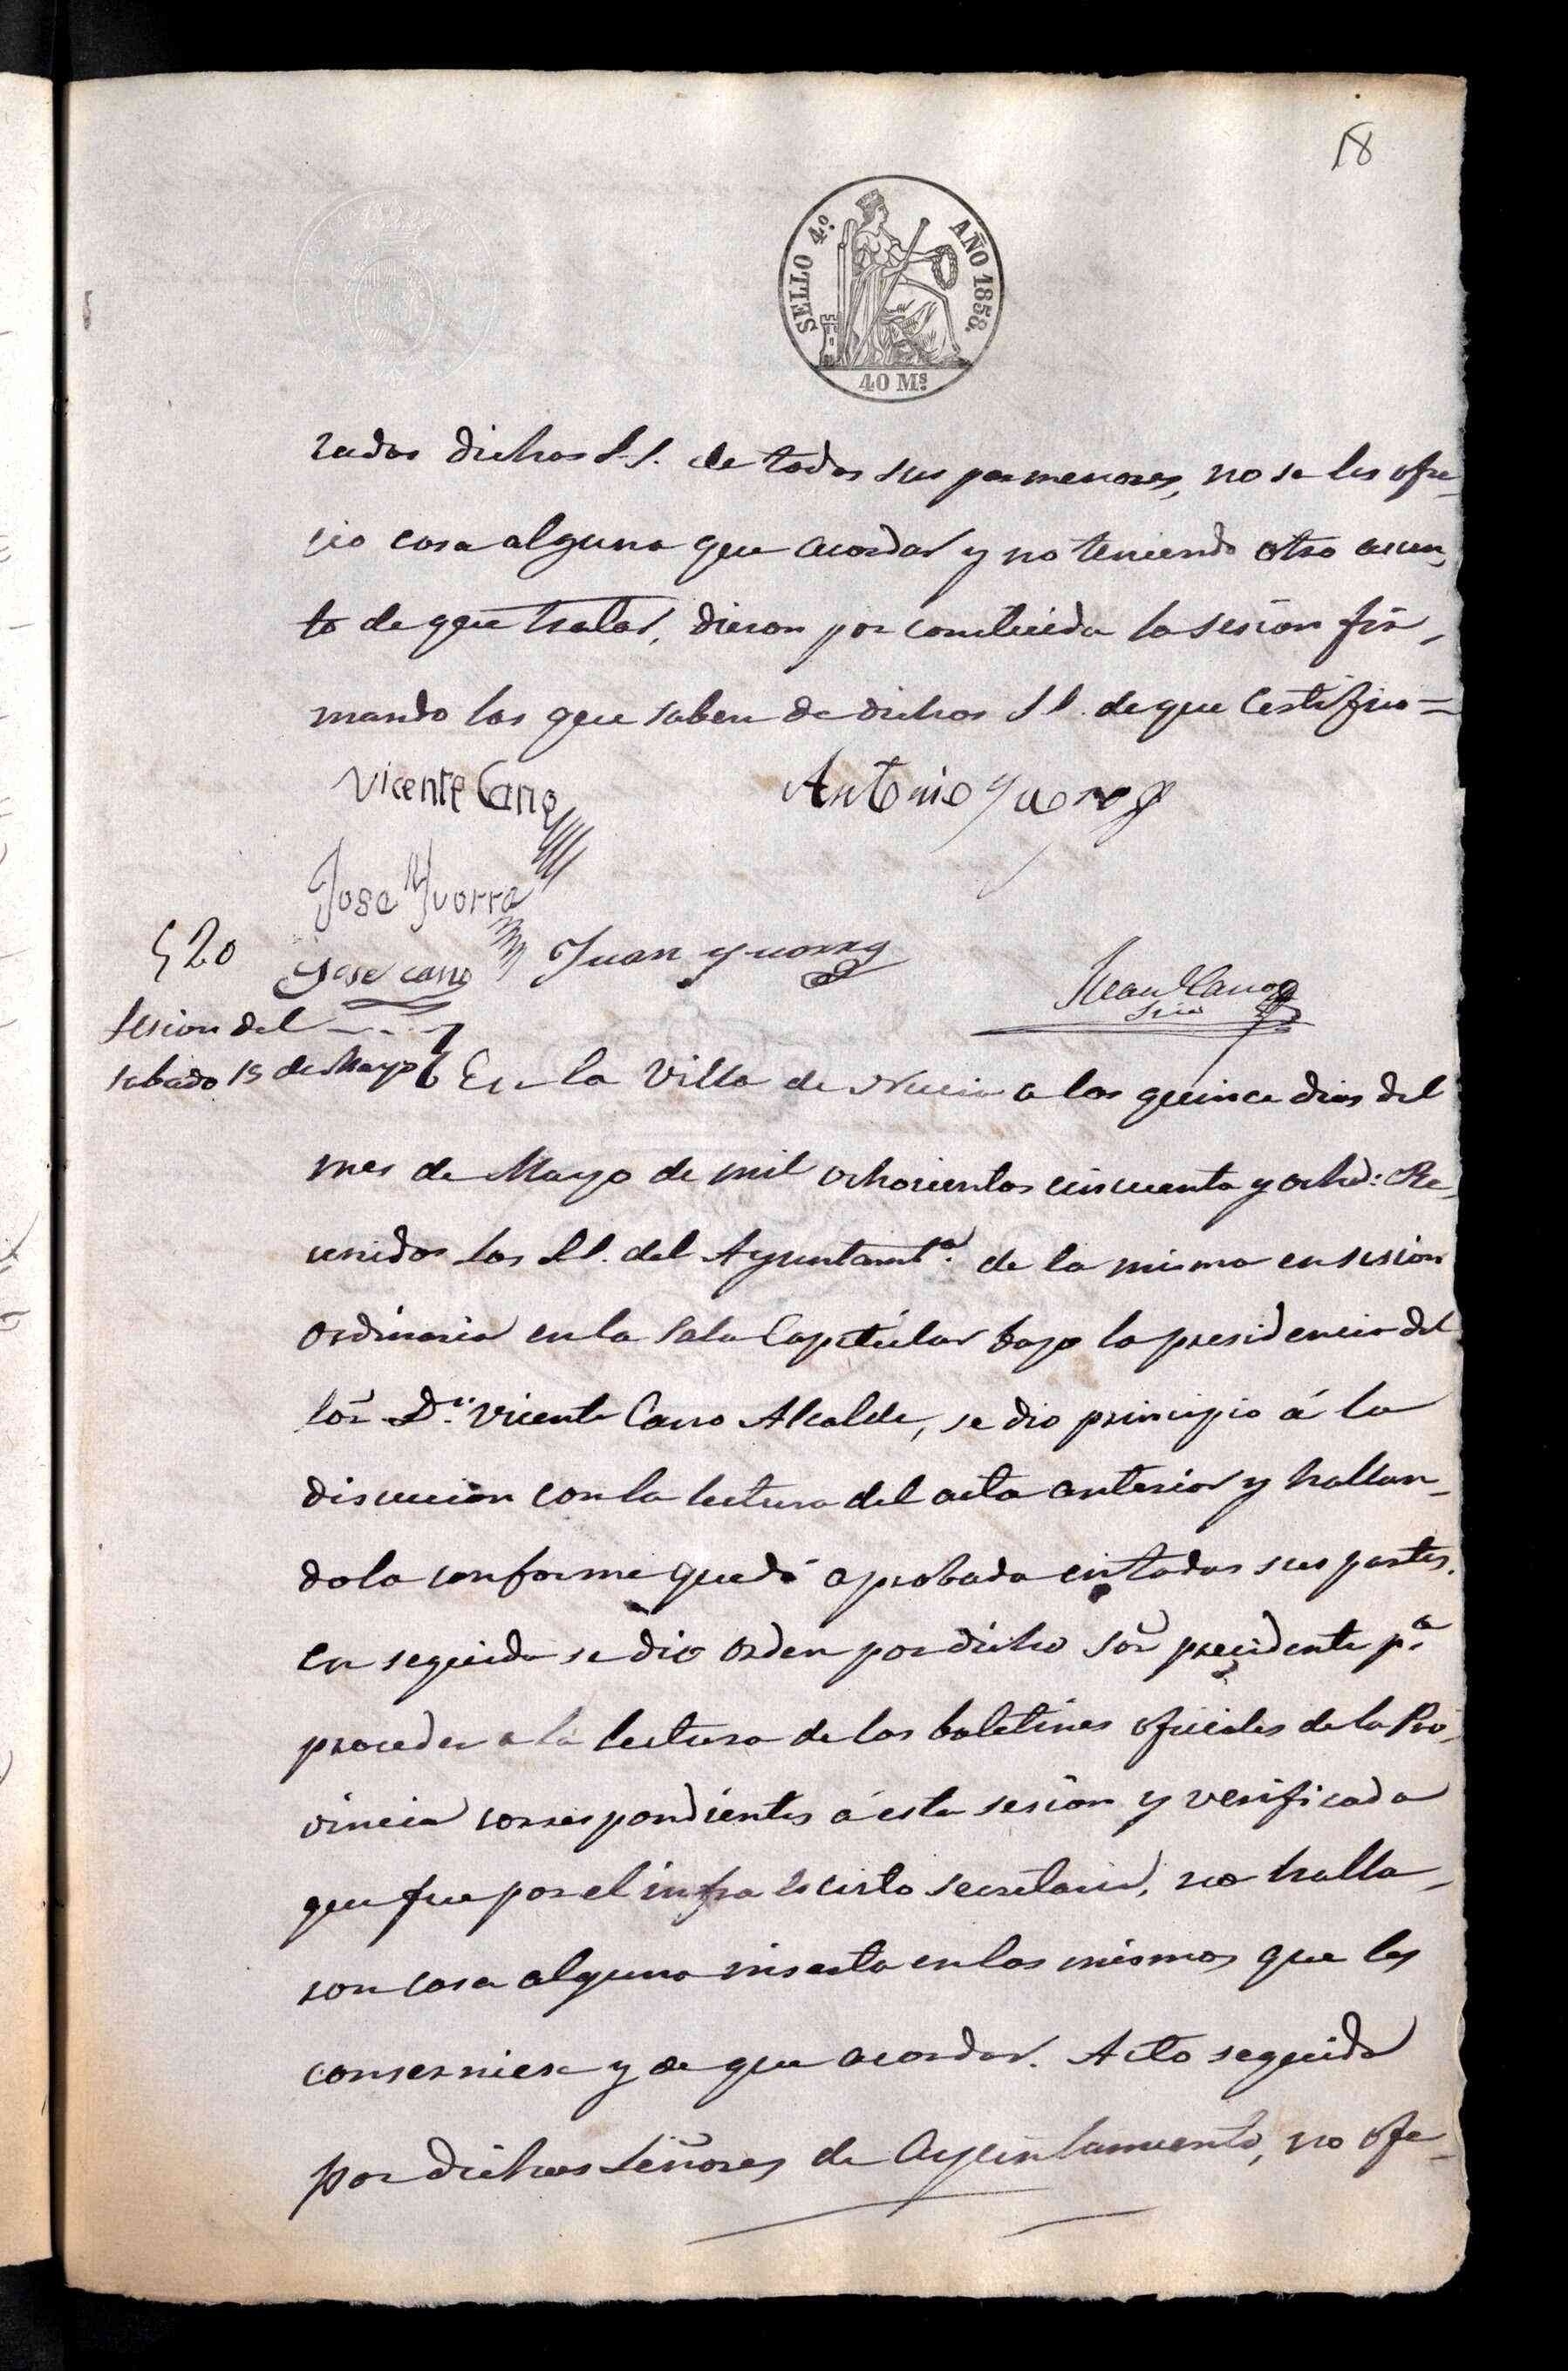 18
SELLO 4º AÑO 1858.
40 Mˢ
rados dichos S.S. de todos sus pormenores, no se les ofre-
cio cosa alguna que acordar y no teniendo otro asun-
to de que tratar, dieron por concluida la sesion fir-
mando los que saben de dichos S.S. de que Certifico =
Vicente Cano
Antonio Yvorra
Jose Yvorra
Jose Cano
Juan Yvorra
Juan Cano
Srio
§ 20
Sesion del
sabado 15 de Mayo
En la Villa de Nucia a los quince dias del
mes de Mayo de mil ochocientos cincuenta y ocho: Re-
unidos los S.S. del Ayuntamtº. de la misma en sesion
ordinaria en la Sala Capitular bajo la presidencia del
Sor Dn. Vicente Cano Alcalde, se dio principio á la
discucion con la lectura del acta anterior y hallan-
dola conforme quedó aprobada en todas sus partes.
En seguida se dio orden por dicho Sor precidente pª
proceder a la lectura de los boletines oficiales de la Pro-
vincia correspondientes á esta sesion y verificada
que fue por el infra escrito secretario, no halla-
ron cosa alguna inserta en los mismos que les
conserniese y de que acordar. Acto seguido
por dichos Señores de Ayuntamiento, no ofre-